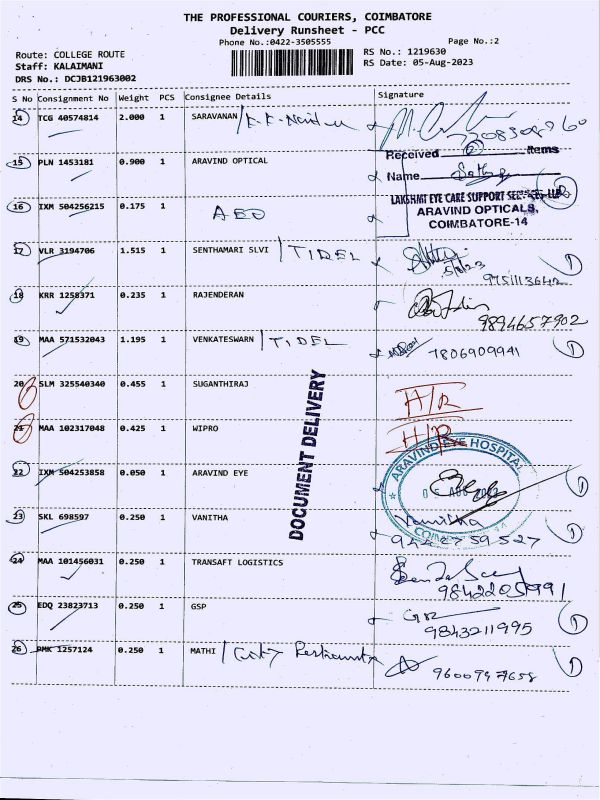 THE PROFESSIONAL COURIERS, COIMBATORE
Delivery Runsheet - PCC
Phone No.:0422-3505555
Page No.:2
Route: COLLEGE ROUTE
Staff: KALAIMANI
DRS No.: DCJB121963002
RS No.: 1219630
RS Date: 05-Aug-2023
S No Consignment No Weight PCS Consignee Details Signature
14 TCG 40574814 2.000 1 SARAVANAN
15 PLN 1453181 0.900 1 ARAVIND OPTICAL
Received Items
Name
LAKSHMI EYE CARE SUPPORT SERVICES LLP
ARAVIND OPTICALS,
COIMBATORE-14
16 IXM 504256215 0.175 1
17 VLR 3194706 1.515 1 SENTHAMARI SLVI / TIDEL
5/8/23
9751113642
18 KRR 1258371 0.235 1 RAJENDERAN
9894657902
19 MAA 571532043 1.195 1 VENKATESWARN / TIDEL
7806909941
20 SLM 325540340 0.455 1 SUGANTHIRAJ
H/R
21 MAA 102317048 0.425 1 WIPRO
H/R
DOCUMENT DELIVERY
22 IXM 504253858 0.050 1 ARAVIND EYE
ARAVIND EYE HOSPITAL
23 SKL 698597 0.250 1 VANITHA
Vanitha
9442759527
24 MAA 101456031 0.250 1 TRANSAFT LOGISTICS
9842205991
25 EDQ 23823713 0.250 1 GSP
9843211995
26 PMK 1257124 0.250 1 MATHI /
9600947658